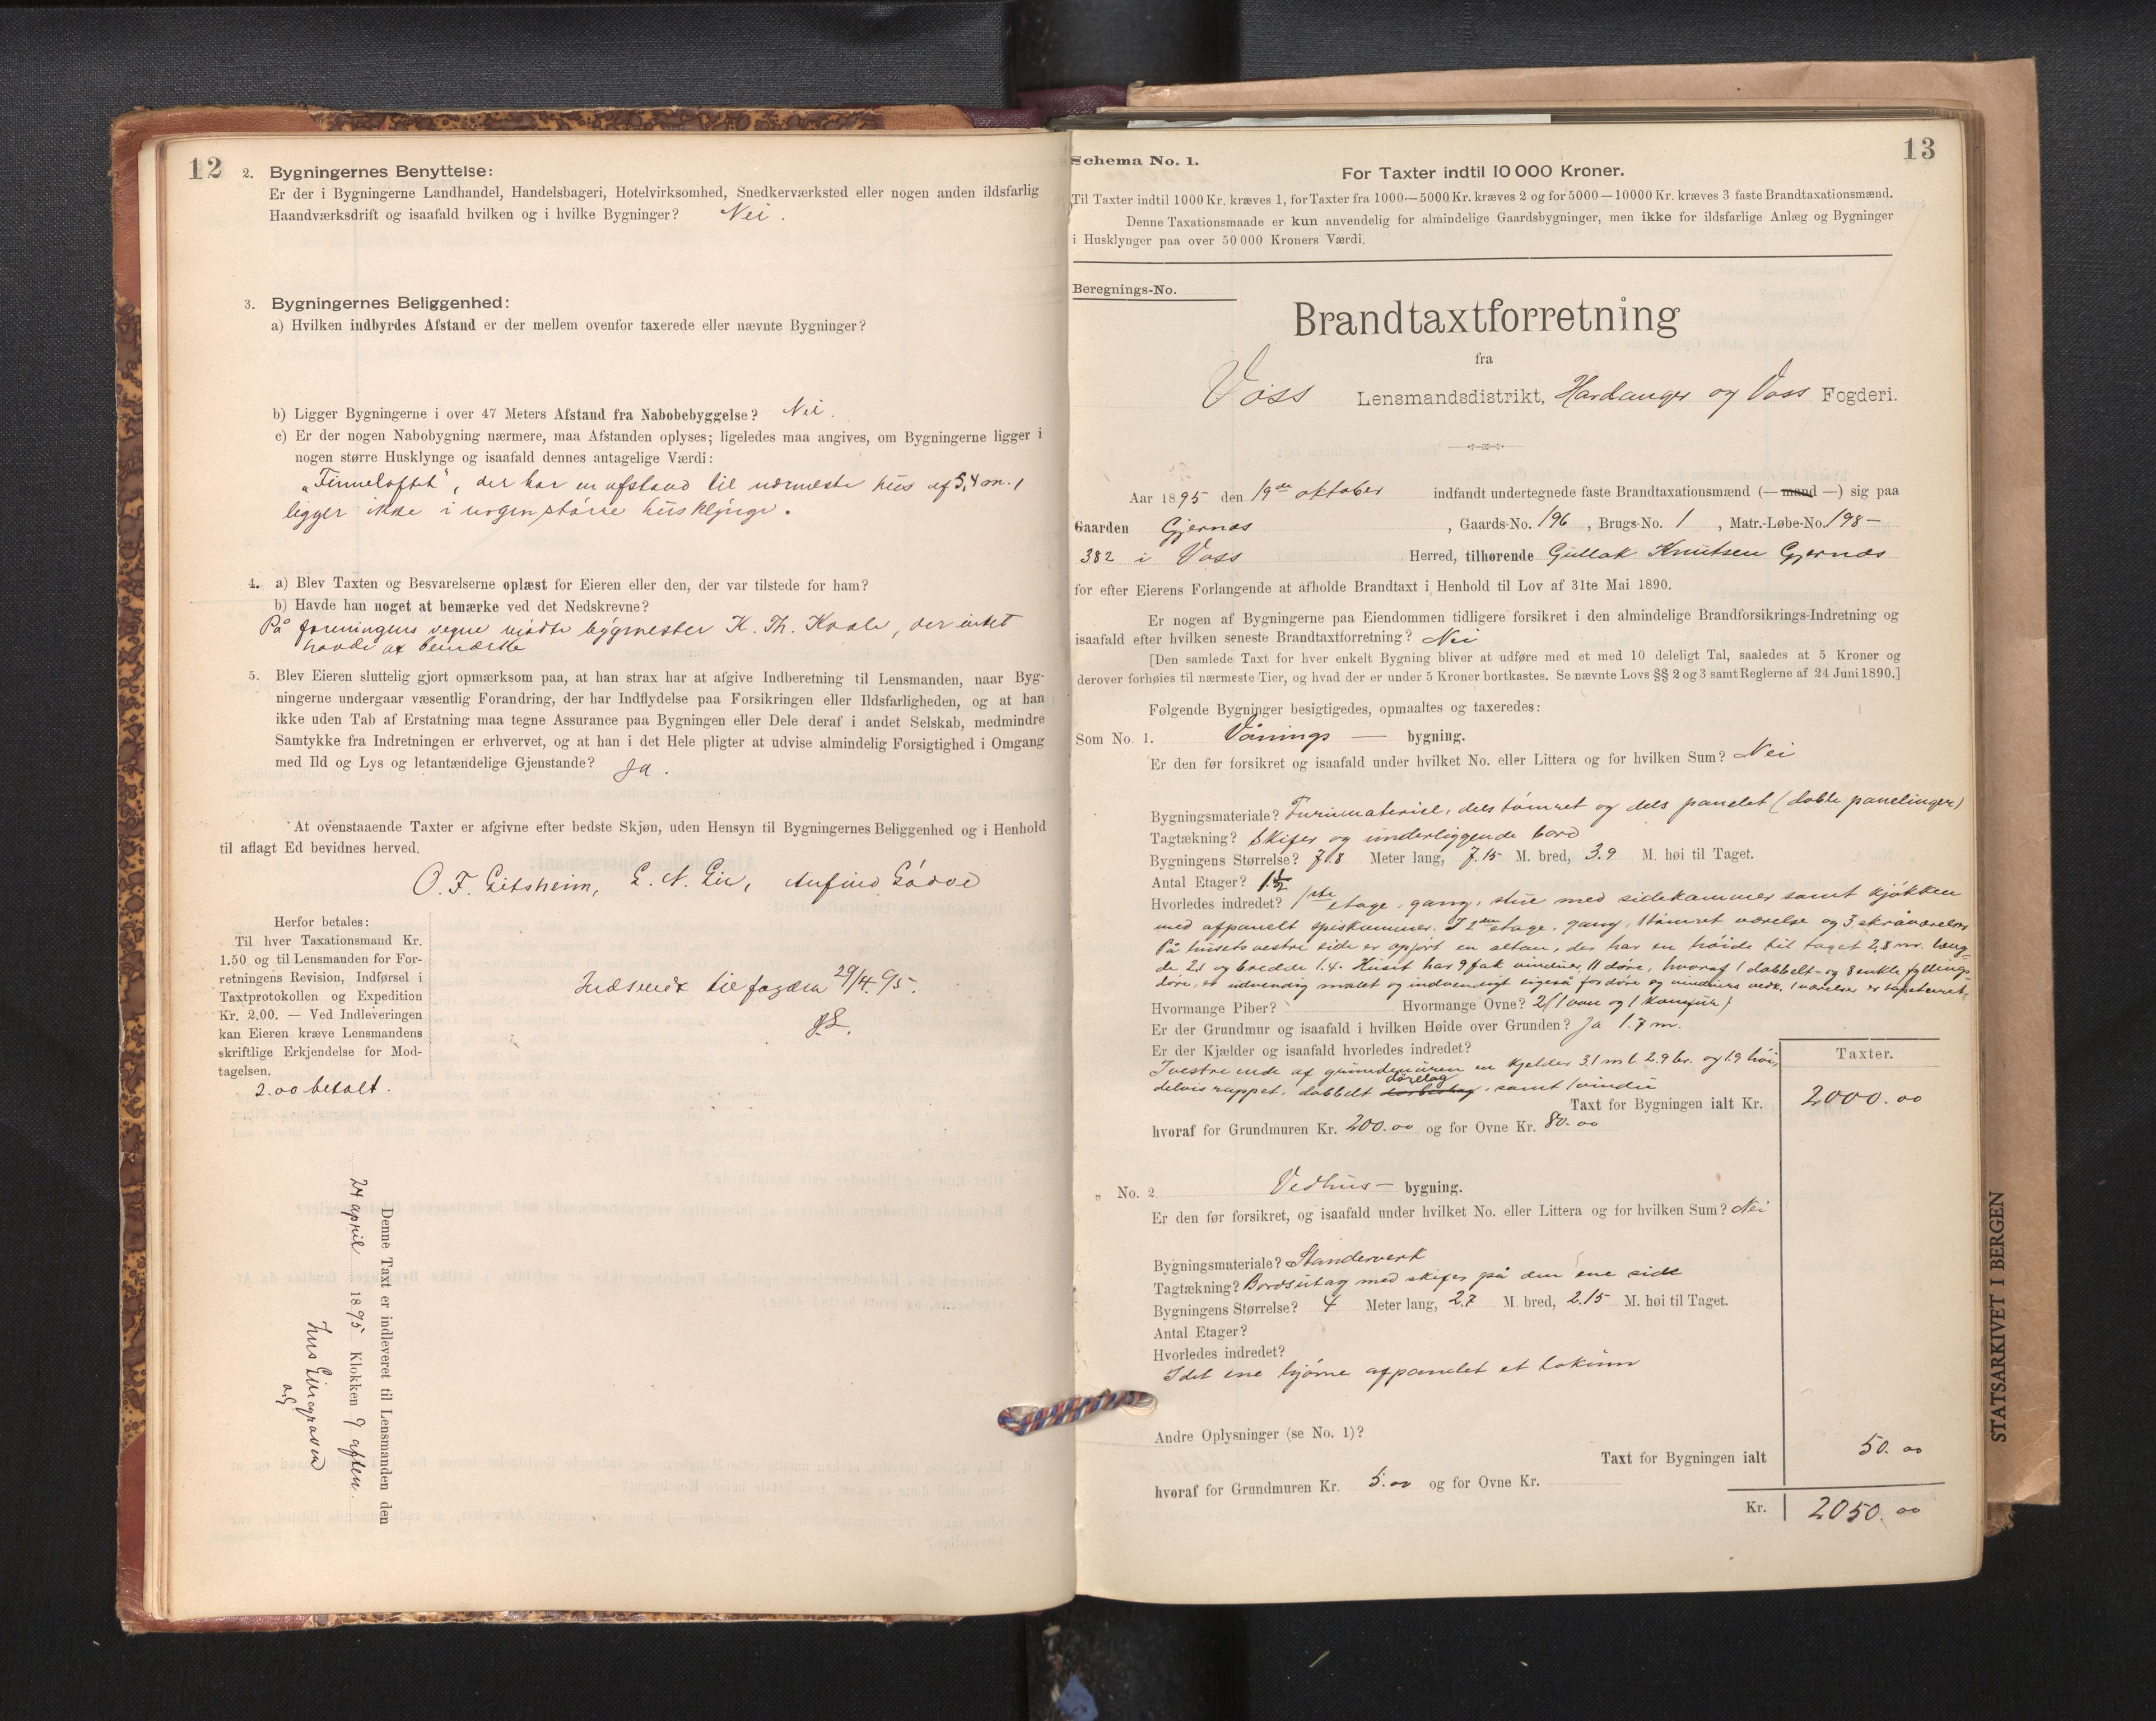 12
2. Bygningernes Benyttelse:
Er der i Bygningerne Landhandel, Handelsbageri, Hotelvirksomhed, Snedkerværksted eller nogen anden ildsfarlig
Haandværksdrift og isaafald hvilken og i hvilke Bygninger? Nei.
3. Bygningernes Beliggenhed:
a) Hvilken indbyrdes Afstand er der mellem ovenfor taxerede eller nævnte Bygninger?
b) Ligger Bygningerne i over 47 Meters Afstand fra Nabobebyggelse? Nei.
c) Er der nogen Nabobygning nærmere, maa Afstanden oplyses; ligeledes maa angives, om Bygningerne ligger i
nogen større Husklynge og isaafald dennes antagelige Værdi:
„Finneloftet", der har en afstand til nærmeste hus af 5,4 m.,
ligger ikke i nogen større husklynge.
4. a) Blev Taxten og Besvarelserne oplæst for Eieren eller den, der var tilstede for ham?
b) Havde han noget at bemærke ved det Nedskrevne?
På foreningens vegne mødte bygmester K. Th. Kvale, der intet
havde at bemærke
5. Blev Eieren sluttelig gjort opmærksom paa, at han strax har at afgive Indberetning til Lensmanden, naar Byg-
ningerne undergaar væsentlig Forandring, der har Indflydelse paa Forsikringen eller Ildsfarligheden, og at han
ikke uden Tab af Erstatning maa tegne Assurance paa Bygningen eller Dele deraf i andet Selskab, medmindre
Samtykke fra Indretningen er erhvervet, og at han i det Hele pligter at udvise almindelig Forsigtighed i Omgang
med Ild og Lys og letantændelige Gjenstande? Ja.
At ovenstaaende Taxter er afgivne efter bedste Skjøn, uden Hensyn til Bygningernes Beliggenhed og i Henhold
til aflagt Ed bevidnes herved.
O. F. Gitsheim, L. N. Lie, Anfind
Herfor betales:
Til hver Taxationsmand Kr.
1.50 og til Lensmanden for For-
retningens Revision, Indførsel i
Taxtprotokollen og Expedition
Kr. 2.00. — Ved Indleveringen
kan Eieren kræve Lensmandens
skriftlige Erkjendelse for Mod-
tagelsen.
2.00 betalt.
Indsendt til fogden 29/4.95.
Denne Taxt er indleveret til Lensmanden den
24 april 1895 Klokken 9 aften.
13
Schema No. 1.
For Taxter indtil 10 000 Kroner.
Til Taxter indtil 1000 Kr. kræves 1, for Taxter fra 1000—5000 Kr. kræves 2 og for 5000—10000 Kr. kræves 3 faste Brandtaxationsmænd.
Denne Taxationsmaade er kun anvendelig for almindelige Gaardsbygninger, men ikke for ildsfarlige Anlæg og Bygninger
i Husklynger paa over 50 000 Kroners Værdi.
Beregnings-No.
Brandtaxtforretning
fra
Voss Lensmandsdistrikt, Hardanger og Voss Fogderi.
Aar 1895 den 19de oktober indfandt undertegnede faste Brandtaxationsmænd (— mand —) sig paa
Gaarden Gjernes, Gaards-No. 196, Brugs-No. 1, Matr.-Løbe-No. 198-
382 i Voss Herred, tilhørende Gullak Knutsen Gjernes
for efter Eierens Forlangende at afholde Brandtaxt i Henhold til Lov af 31te Mai 1890.
Er nogen af Bygningerne paa Eiendommen tidligere forsikret i den almindelige Brandforsikrings-Indretning og
isaafald efter hvilken seneste Brandtaxtforretning? Nei
[Den samlede Taxt for hver enkelt Bygning bliver at udføre med et med 10 deleligt Tal, saaledes at 5 Kroner og
derover forhøies til nærmeste Tier, og hvad der er under 5 Kroner bortkastes. Se nævnte Lovs §§ 2 og 3 samt Reglerne af 24 Juni 1890.]
Følgende Bygninger besigtigedes, opmaaltes og taxeredes:
Som No. 1. Vånings — bygning.
Er den før forsikret og isaafald under hvilket No. eller Littera og for hvilken Sum? Nei
Bygningsmateriale? Furumateriel, dels tømret og dels panelet (dobble panelinger)
Tagtækning? Skifer og underliggende bord
Bygningens Størrelse? 7.8 Meter lang, 7.15 M. bred, 3.9 M. høi til Taget.
Antal Etager? 1 1/2
Hvorledes indredet? 1ste etage, gang, stue med sidekammer samt kjøkken
med afpanelt spiskammer. I 2den etage, gang, 1 tømret værelse og 3 skråværelser
På husets vestre side er opført en altan, der har en høide til taget 2,8 m. læng-
de 2.1 og bredde 1.4. Huset har 9 fak vinduer, 11 døre, hvoraf 1 dobbelt- og 8 enkle fyllings-
døre, er udvendig malet og indvendigt ligeså for døre og vinduers vedk. 1 værelse er tapetseret
Hvormange Piber? Hvormange Ovne? 2 (1 ovn og 1 komfur)
Er der Grundmur og isaafald i hvilken Høide over Grunden? Ja 1.7 m.
Er der Kjælder og isaafald hvorledes indredet?
I vestre ende af grundmuren en kjelder 3.1 m l. 2.9 br. og 1.9 høi,
delvis rappet, dobbelt dørelag, samt 1 vindu
Taxter.
Taxt for Bygningen ialt Kr. 2000.00
hvoraf for Grundmuren Kr. 200.00 og for Ovne Kr. 80.00
„ No. 2 Vedhus — bygning.
Er den før forsikret, og isaafald under hvilket No. eller Littera og for hvilken Sum? Nei
Bygningsmateriale? Standerverk
Tagtækning? Bordsutag med skifer på den ene side
Bygningens Størrelse? 4 Meter lang, 2.7 M. bred, 2.15 M. høi til Taget.
Antal Etager?
Hvorledes indredet?
I det ene hjørne afpanelet et lokum
Andre Oplysninger (se No. 1)?
Taxt for Bygningen ialt 50.00
hvoraf for Grundmuren Kr. 5.00 og for Ovne Kr.
Kr. 2050.00
STATSARKIVET I BERGEN